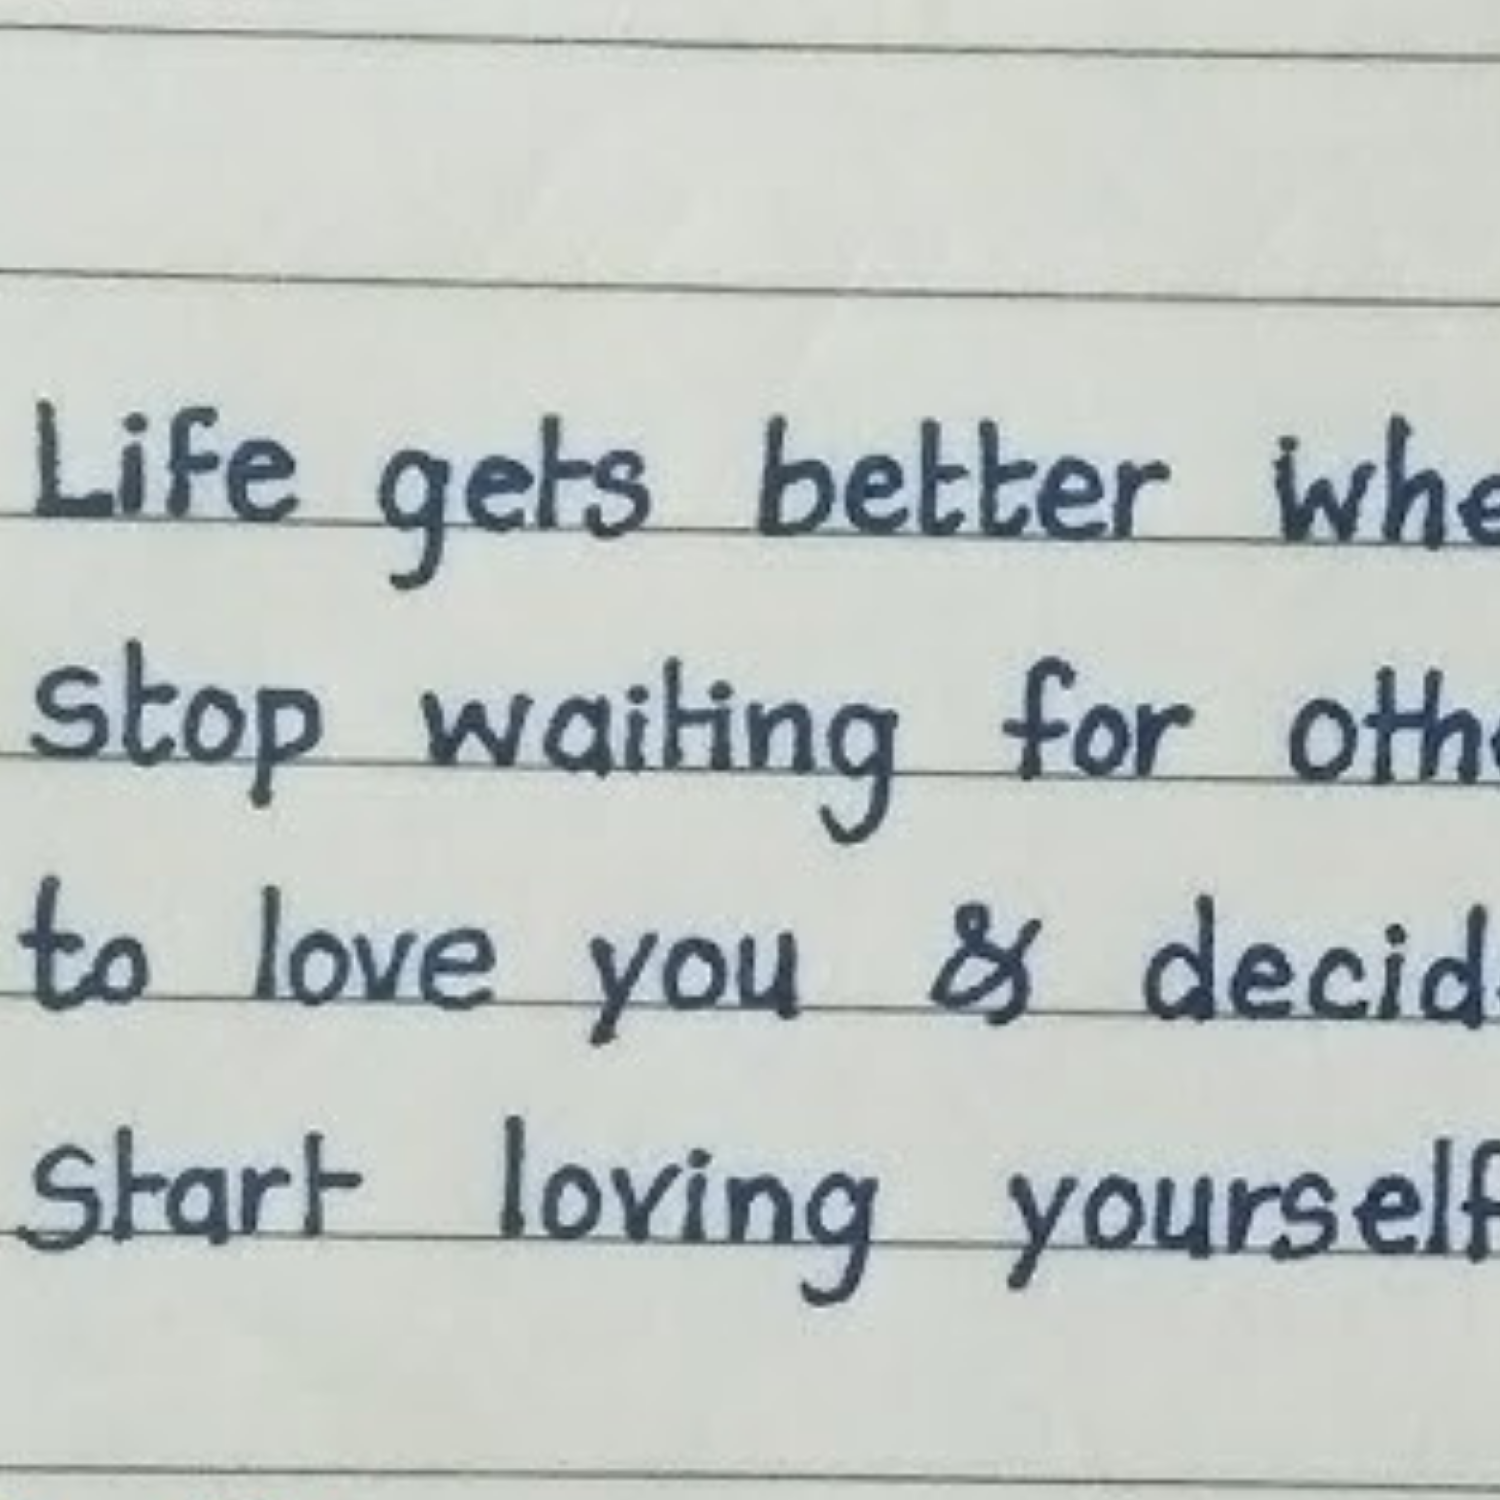 Life gets better whe
stop waiting for othe
to love you & decid
Start loving yourself